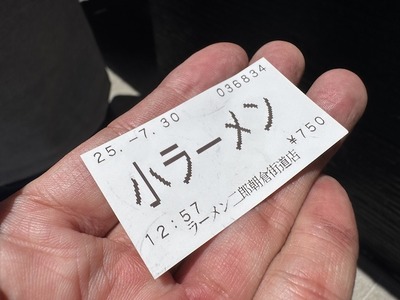 25. -7. 30 036834
小ラーメン
12:57 ¥750
ラーメン二郎朝倉街道店